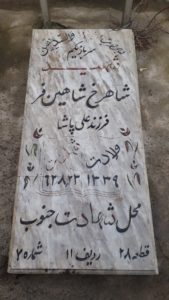 شهید
شاهرخ شاهین فر
فرزند علی پاشا
ولادت شهادت
۱۳۳۹ ۶۲٫۸٫۲۳
محل شهادت جنوب
قطعه ۲۸ ردیف ۱۱ شماره ۲